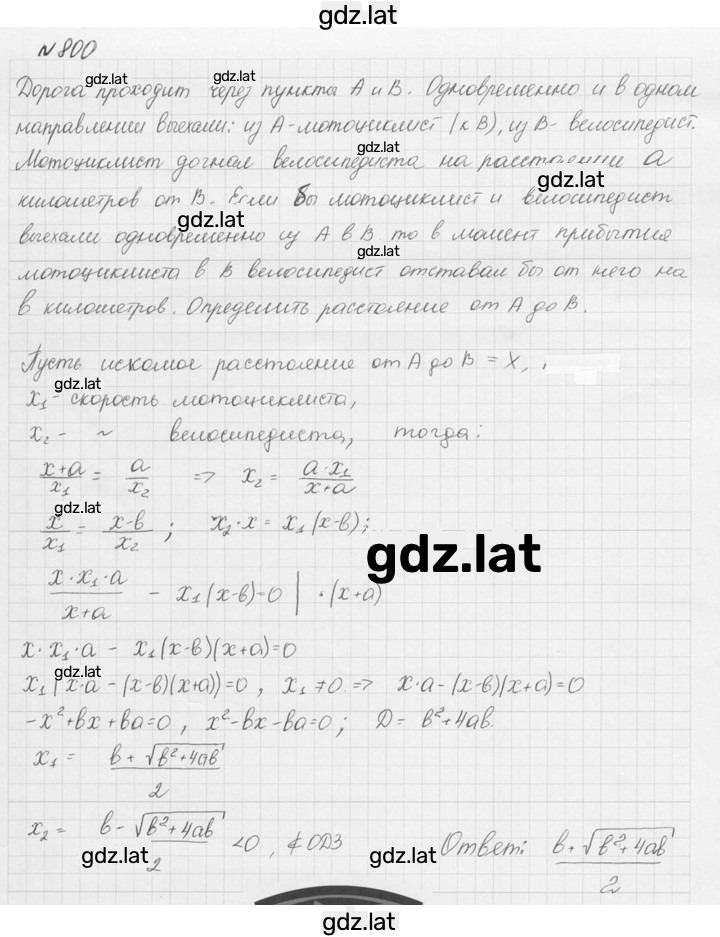 gdz.lat
№ 800
gdz.lat gdz.lat
Дорога проходит через пункты А и В. Одновременно и в одном
направлении выехали: из А-мотоциклист (к В), из В- велосипедист.
gdz.lat gdz.lat
Мотоциклист догнал велосипедиста на расстоянии а
gdz.lat
километров от В. Если бы мотоциклист и велосипедист
gdz.lat
выехали одновременно из А в В то в момент прибытия
gdz.lat
мотоциклиста в В велосипедист отставал бы от него на
в километров. Определить расстояние от А до В.
Пусть искомое расстояние от А до В = х,
gdz.lat
x₁ - скорость мотоциклиста,
x₂ - ~ велосипедиста, тогда:
(x+a)/x₁ = a/x₂ => x₂ = (a·x₁)/(x+a)
gdz.lat
x/x₁ = (x-в)/x₂ ; x₂·x = x₁(x-в);
gdz.lat
(x·x₁·a)/(x+a) - x₁(x-в)=0 | ·(x+a)
x·x₁·a - x₁(x-в)(x+a)=0
gdz.lat
x₁(x·a-(x-в)(x+a))=0, x₁≠0 => x·a-(x-в)(x+a)=0
-x²+вx+вa=0, x²-вx-вa=0; D= в²+4aв.
x₁ = (в+√(в²+4aв))/2
x₂ = (в-√(в²+4aв))/2 <0, ∉ ОДЗ Ответ: (в+√(в²+4aв))/2
gdz.lat gdz.lat gdz.lat
gdz.lat